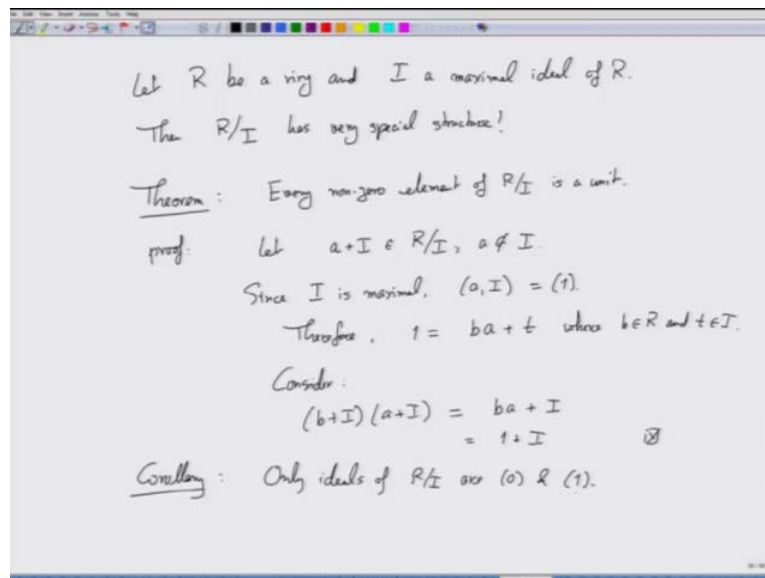 Let R be a ring and I a maximal ideal of R.
The R/I has very special structure!
Theorem : Every non-zero element of R/I is a unit.
proof. Let a+I ∈ R/I, a ∉ I.
Since I is maximal, (a, I) = (1).
Therefore, 1 = ba + t where b∈R and t∈I.
Consider :
(b+I)(a+I) = ba + I
= 1 + I
Corollary : Only ideals of R/I are (0) & (1).